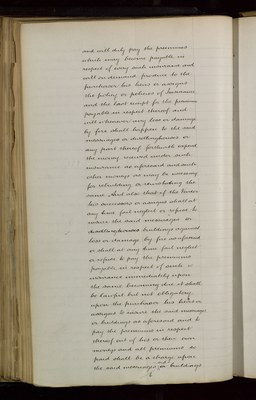 and will duly pay the premiums
which may become payable in
respect of every such insurance and
will on demand produce to the
purchaser his heirs or assigns
the policy or policies of Insurance
and the last receipt for the premium
payable in respect thereof and
will whenever any loss or damage
by fire shall happen to the said
messuages or dwellinghouses or
any part thereof forthwith expend
the money received under such
insurance as aforesaid and such
other moneys as may be necessary
for rebuilding or reinstating the
same And also that if the
his successors or assigns shall at
any time fail neglect or refuse to
insure the said messuages or
dwellinghouses buildings against
loss or damage by fire as aforesaid
or shall at any time fail neglect
or refuse to pay the premiums
payable in respect of such
insurance immediately upon
the same becoming due it shall
be lawful but not obligatory
upon the purchaser his heirs or
assigns to insure the said messuages
or buildings as aforesaid and to
pay the premiums in respect
thereof out of his or their own
moneys and all premiums so
paid shall be a charge upon
the said messuages and buildings